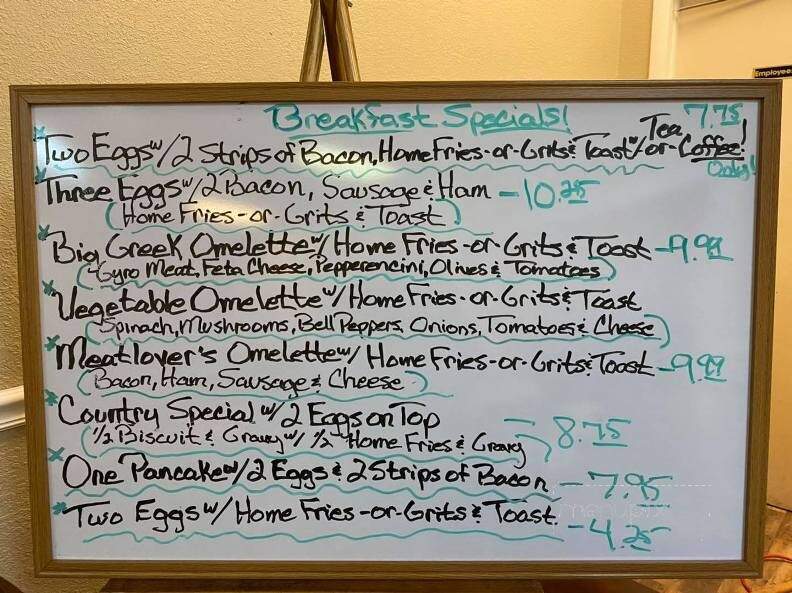 Employee
Breakfast Specials!
Tea 7.75
* Two Eggs w/ 2 Strips of Bacon, Home Fries-or-Grits & Toast w/ -or- Coffee!
Only!
* Three Eggs w/ 2 Bacon, Sausage & Ham - 10.25
(Home Fries-or-Grits & Toast)
* Big Greek Omelette w/ Home Fries-or-Grits & Toast - 9.99
(Gyro Meat, Feta Cheese, Pepperencini, Olives & Tomatoes)
* Vegetable Omelette w/ Home Fries-or-Grits & Toast
(Spinach, Mushrooms, Bell Peppers, Onions, Tomatoes & Cheese)
* Meatlover's Omelette w/ Home Fries-or-Grits & Toast - 9.99
(Bacon, Ham, Sausage & Cheese)
* Country Special w/ 2 Eggs on Top - 8.75
(1/2 Biscuit & Gravy w/ 1/2 Home Fries & Gravy)
* One Pancake w/ 2 Eggs & 2 Strips of Bacon - 7.95
* Two Eggs w/ Home Fries-or-Grits & Toast - 4.25